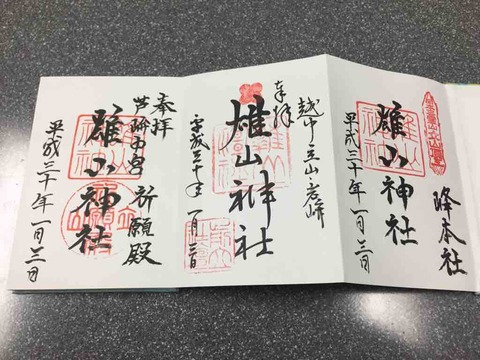 峰本社
雄山神社
平成三十年一月三日
越中立山岩峅
奉拝
雄山神社
平成三十年一月三日
奉拝
芦峅中宮 祈願殿
雄山神社
平成三十年一月三日